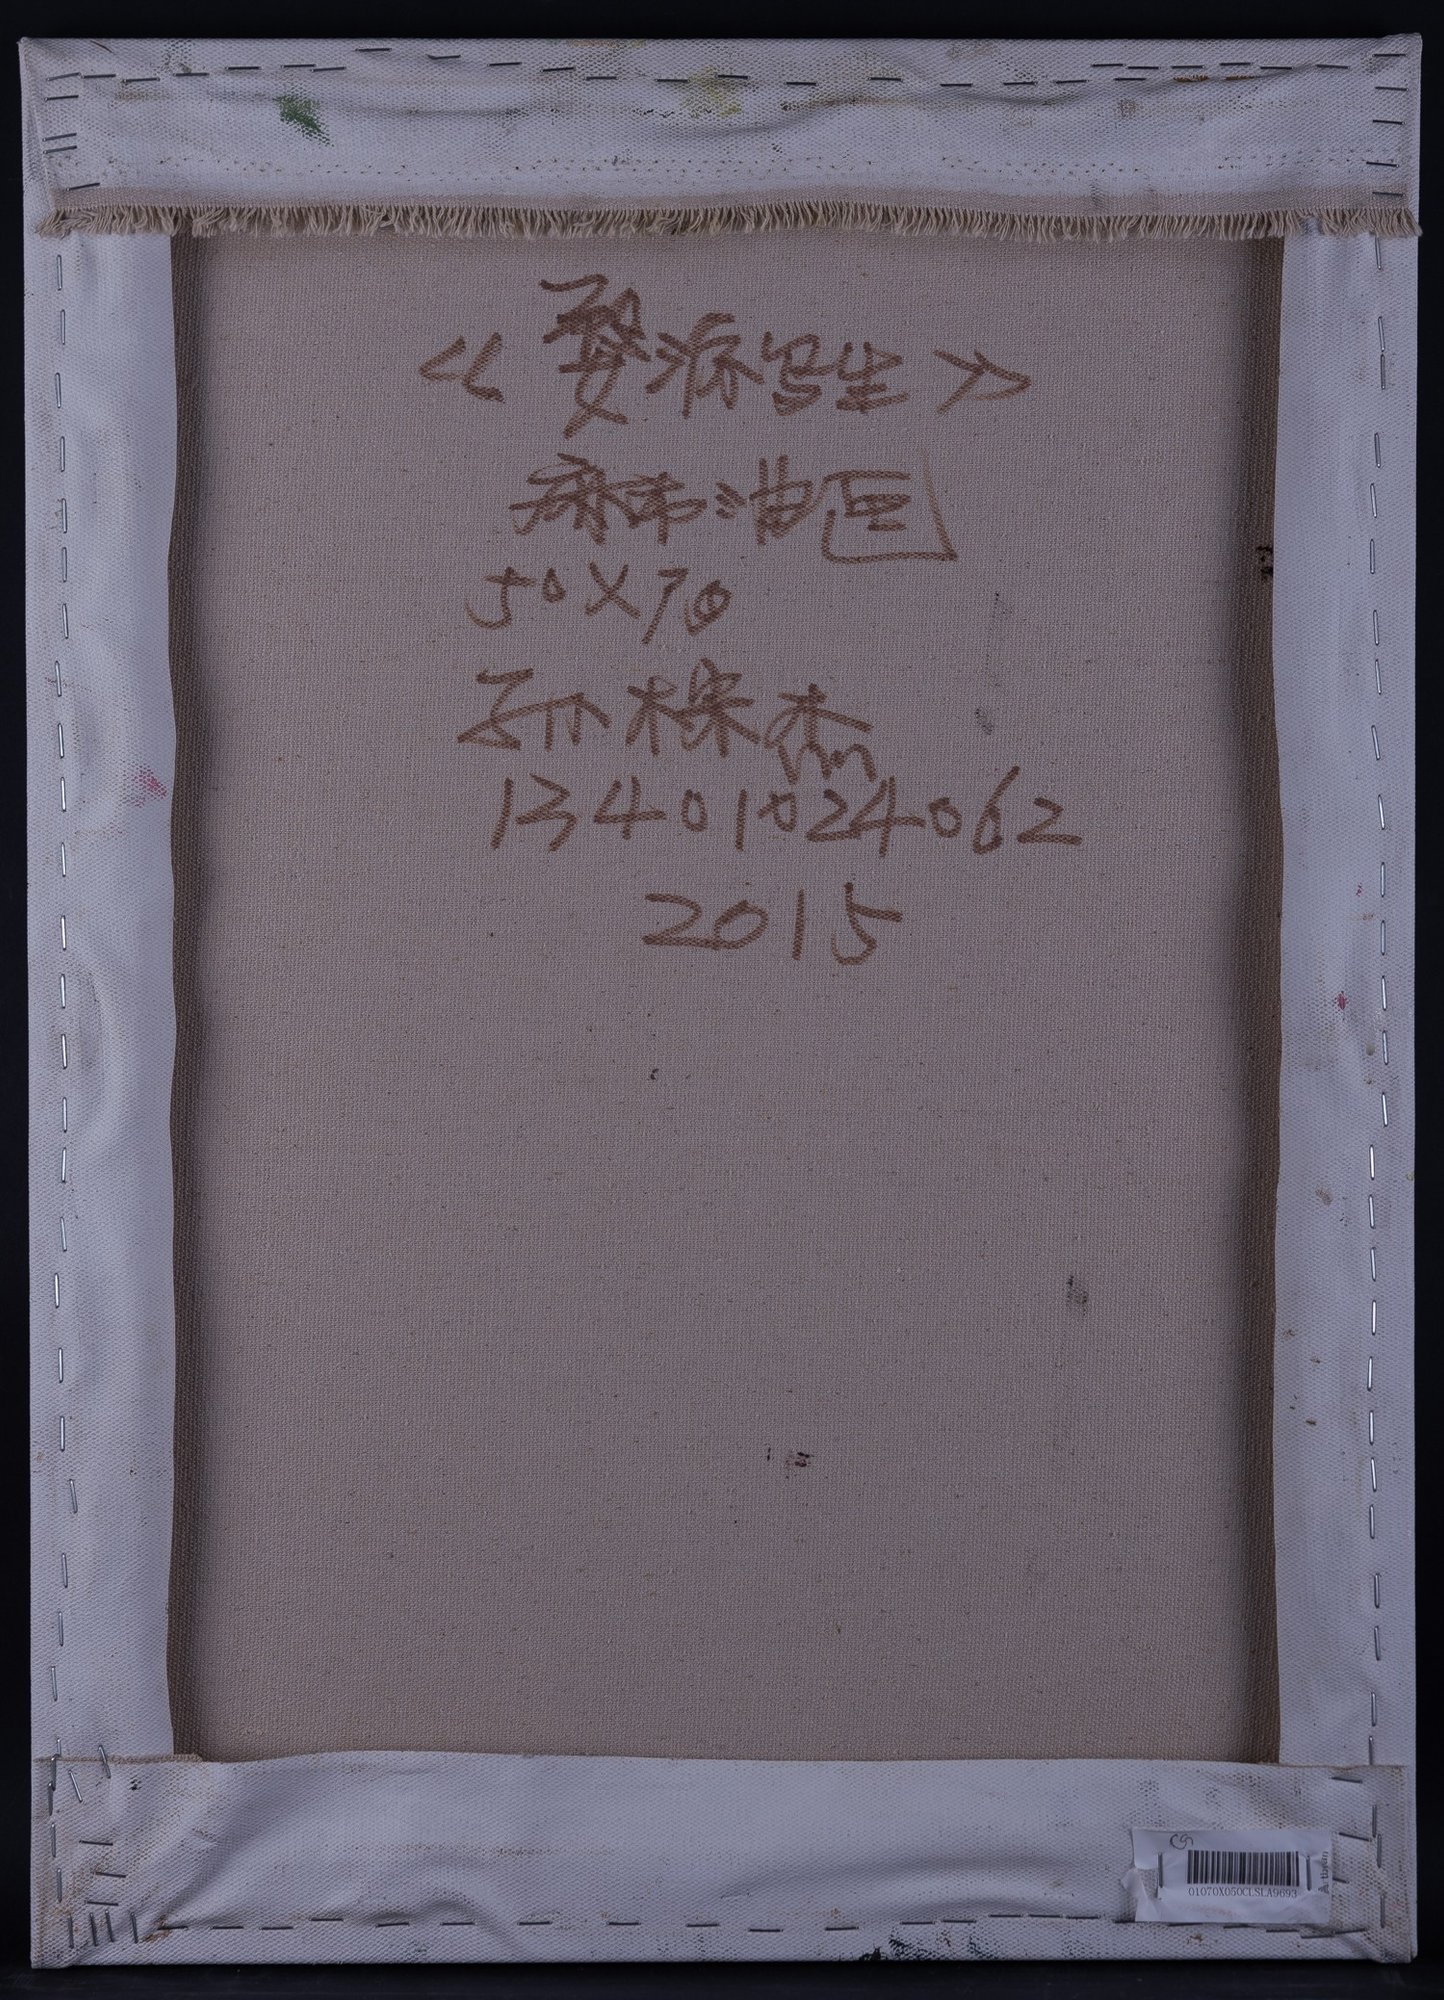 《婺源写生》
麻布油画
50X70
孙
13401024062
2015
C9
01070X050CLSLA9693